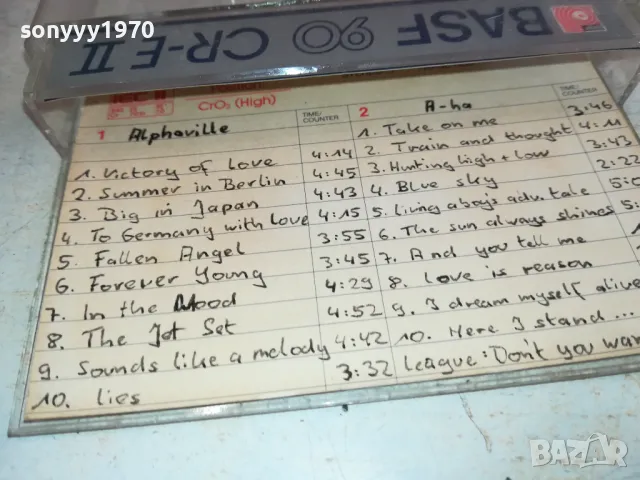 sonyyy1970
BASF 90 CR-E II
IEC II
Position
CrO₂ (High)
TIME/COUNTER
TIME/COUNTER
1 Alphaville
1. Victory of Love 4:14
2. Summer in Berlin 4:45
3. Big in Japan 4:43
4. To Germany with Love 4:15
5. Fallen Angel 3:55
6. Forever Young 3:45
7. In the Mood 4:29
8. The Jet Set 4:52
9. Sounds like a melody 4:42
10. lies 3:32
2 A-ha
1. Take on me 3:46
2. Train and thought 4:11
3. Hunting high + low 3:43
4. Blue sky 2:22
5. Living aboy's adv. tale 5:0
6. The sun always shines 5:0
7. And you tell me
8. Love is reason
9. I dream myself alive
10. Here I stand ...
League: Don't you wan
BAZAR